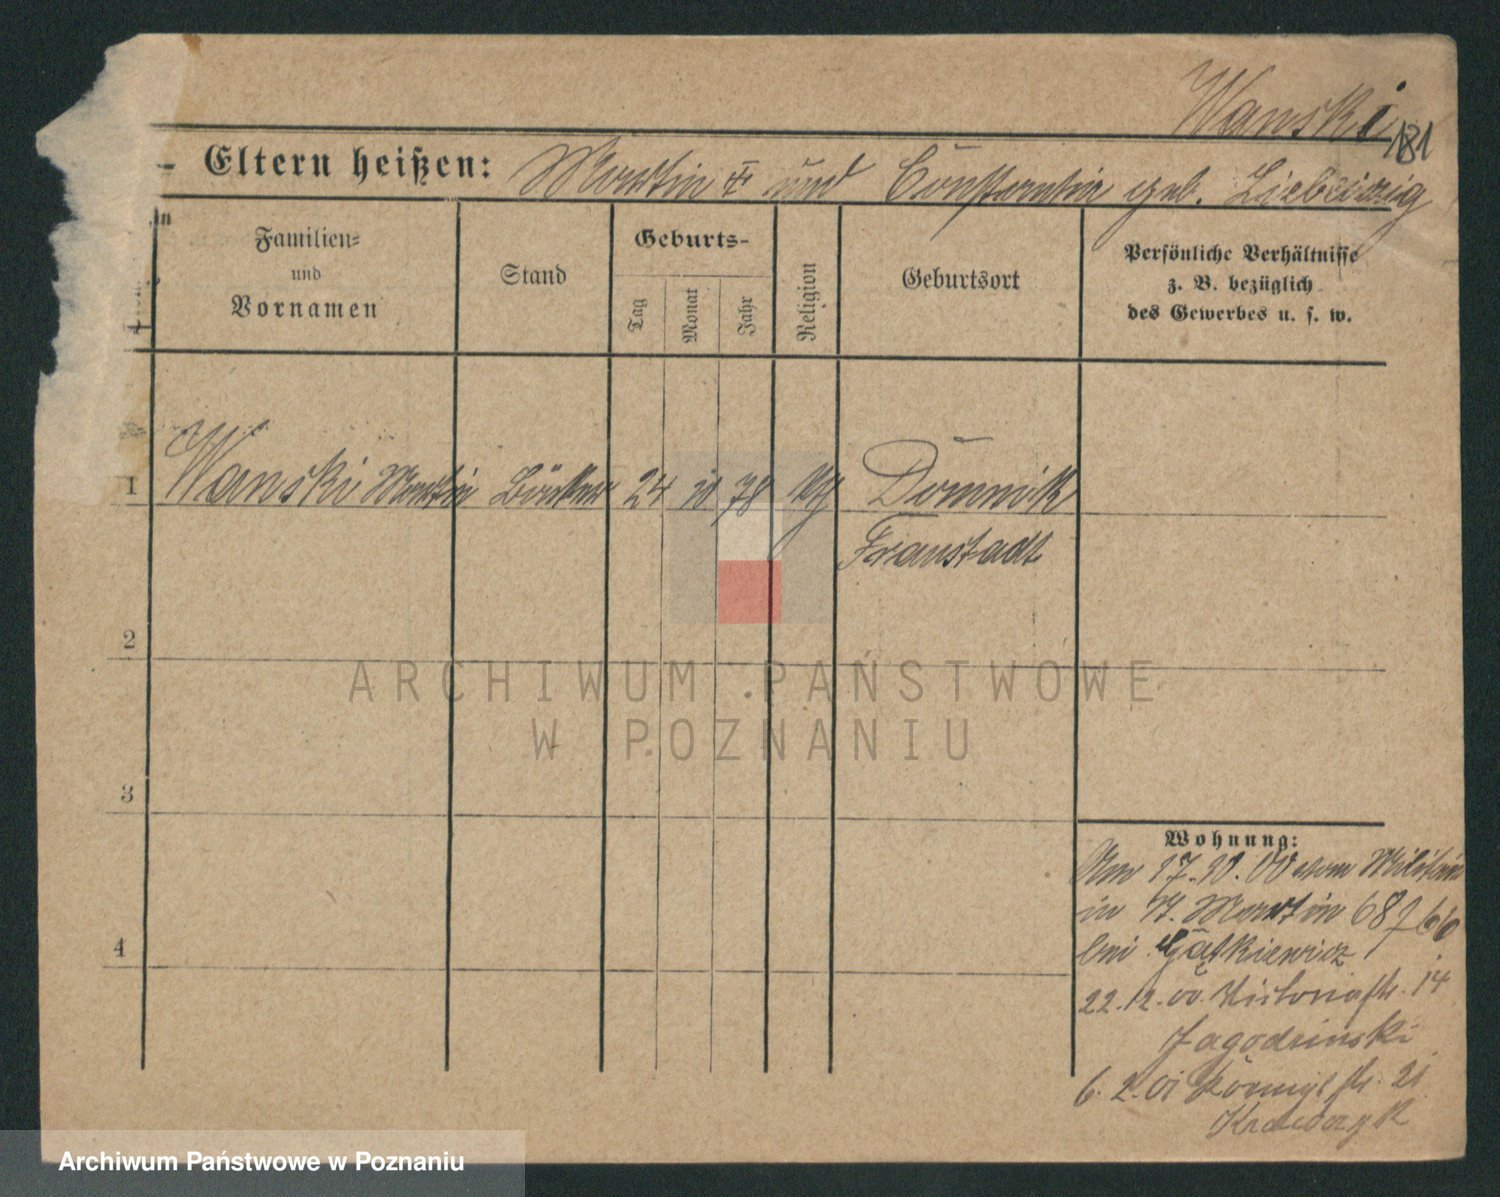 Wanski
181
Eltern heißen: Martin † und Constantia geb. Liebewig
Familien-
und
Vornamen
Stand
Geburts-
Tag
Monat
Jahr
Religion
Geburtsort
Persönliche Verhältnisse
z. B. bezüglich
des Gewerbes u. s. w.
1 Wanski Martin Bäcker 24 10 78 Domnik
Fraustadt
2
3
4
Wohnung:
Am 17.10.00 vom Militär
in St. Martin 68 66
bei
22.12.00. Victoriastr. 14
Jagodzinski
6.2.01 Königstr. 21
Krawczyk
ARCHIWUM PAŃSTWOWE
W POZNANIU
Archiwum Państwowe w Poznaniu